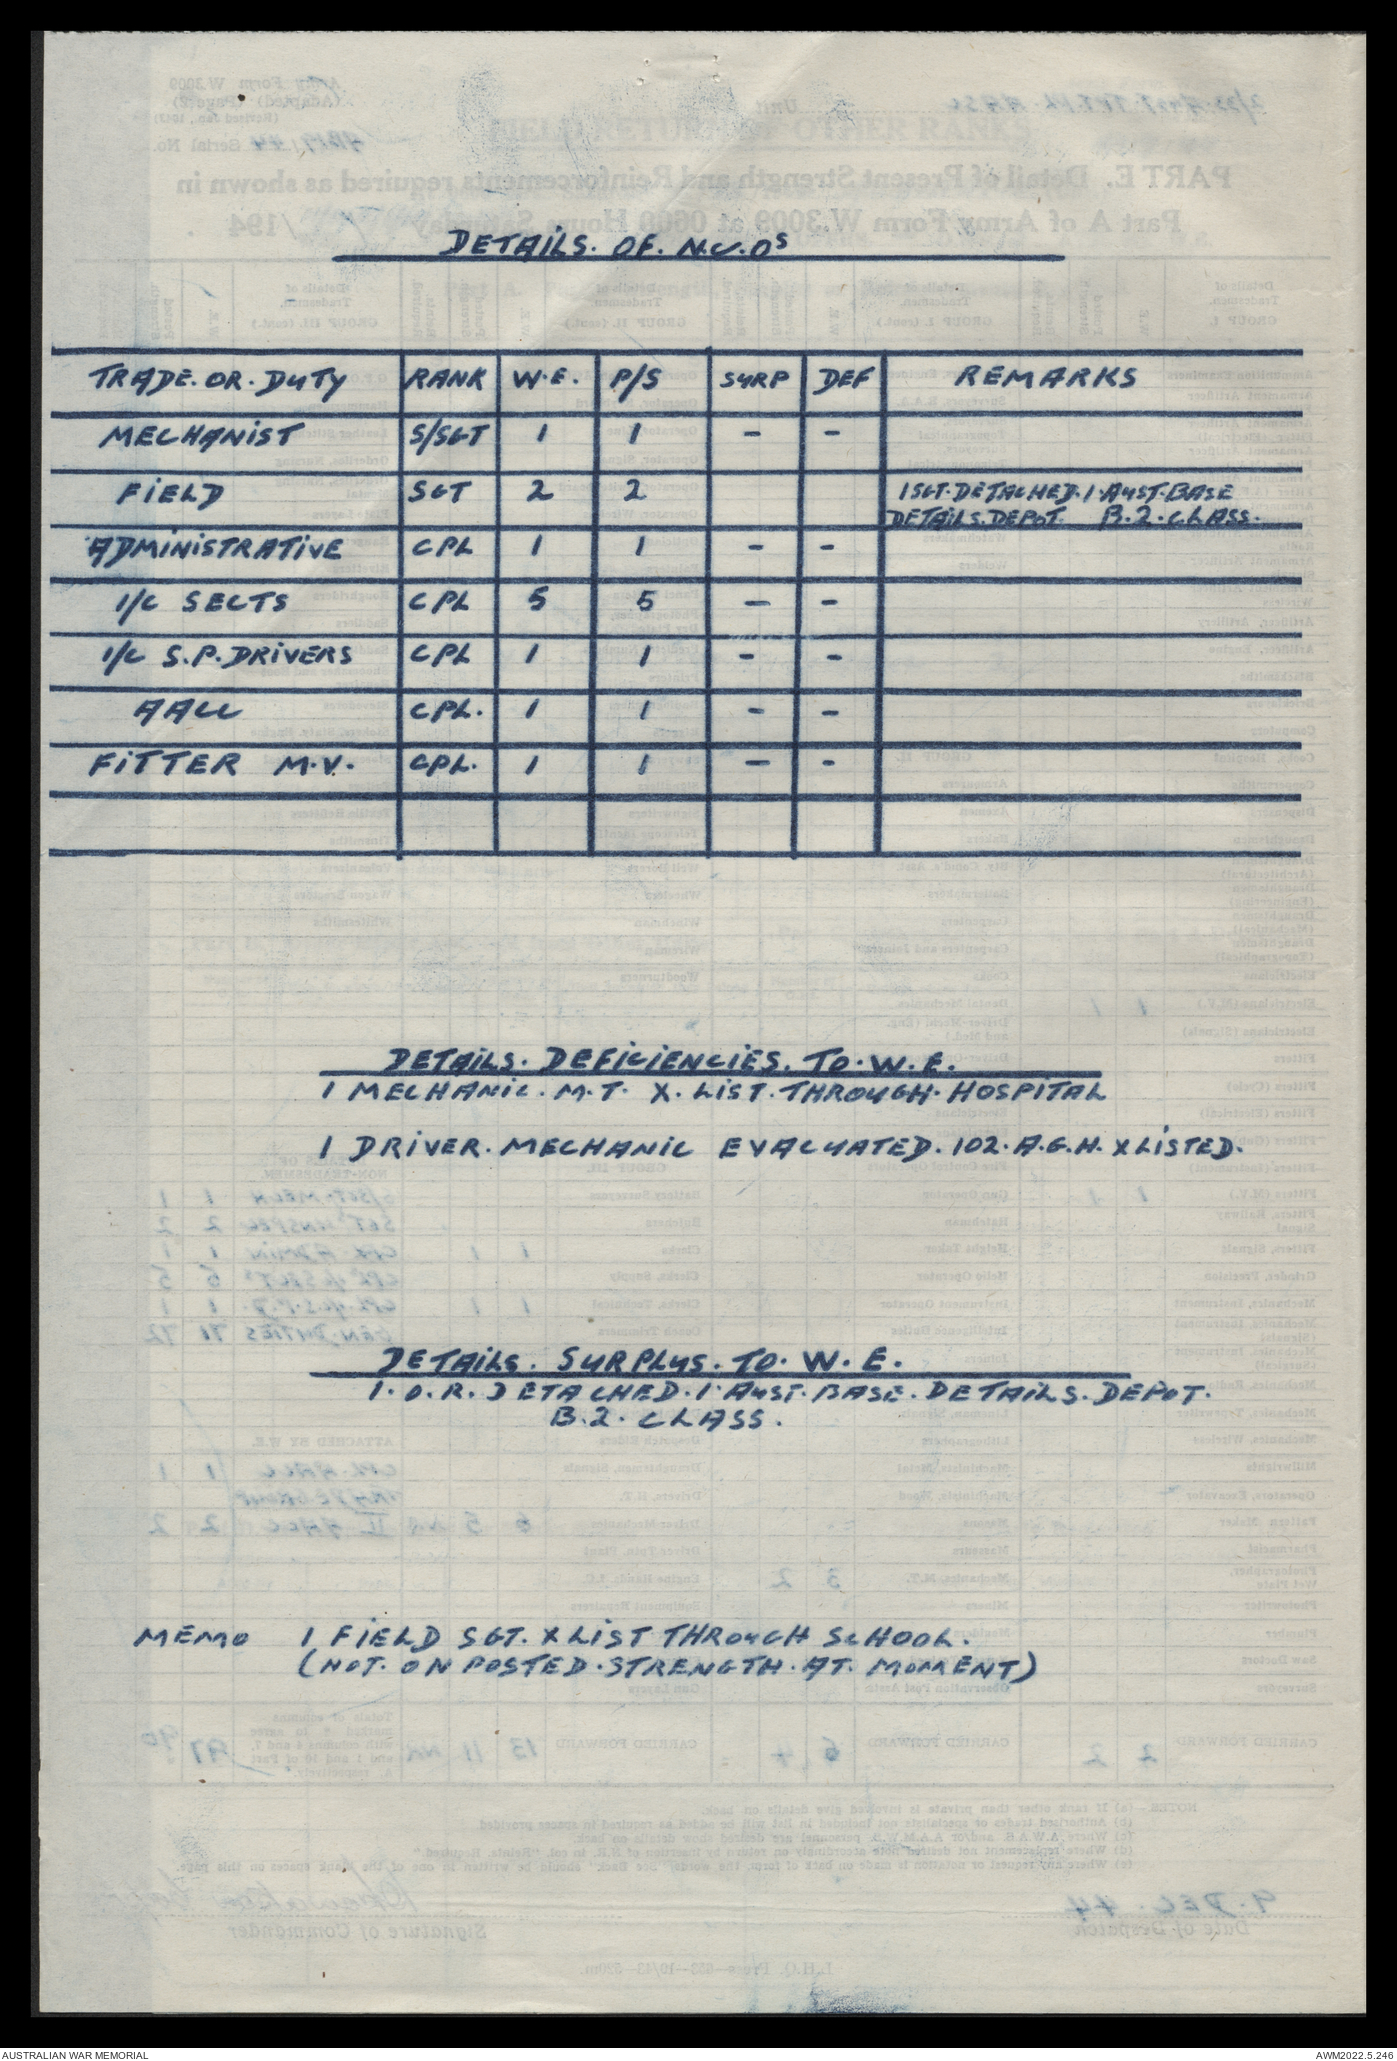 DETAILS. OF. N.C.Os
TRADE. OR. DUTY RANK W.E. P/S SURP DEF REMARKS
MECHANIST S/SGT 1 1 – –
FIELD SGT 2 2 1 SGT. DETACHED. 1. AUST. BASE
DETAILS. DEPOT. B.2. CLASS.
ADMINISTRATIVE CPL 1 1 – –
I/C SECTS CPL 5 5 – –
I/C S.P. DRIVERS CPL 1 1 – –
AACC CPL. 1 1 – –
FITTER M.V. CPL. 1 1 – –
DETAILS. DEFICIENCIES. TO. W.E.
1 MECHANIC. M.T. X. LIST. THROUGH. HOSPITAL
1 DRIVER. MECHANIC EVACUATED. 102. A.G.H. X LISTED.
DETAILS. SURPLUS. TO. W.E.
1. O.R. DETACHED. 1. AUST. BASE. DETAILS. DEPOT.
B.2. CLASS.
MEMO 1 FIELD SGT. X LIST THROUGH SCHOOL.
(NOT. ON POSTED. STRENGTH. AT. MOMENT)
AUSTRALIAN WAR MEMORIAL AWM2022.5.246